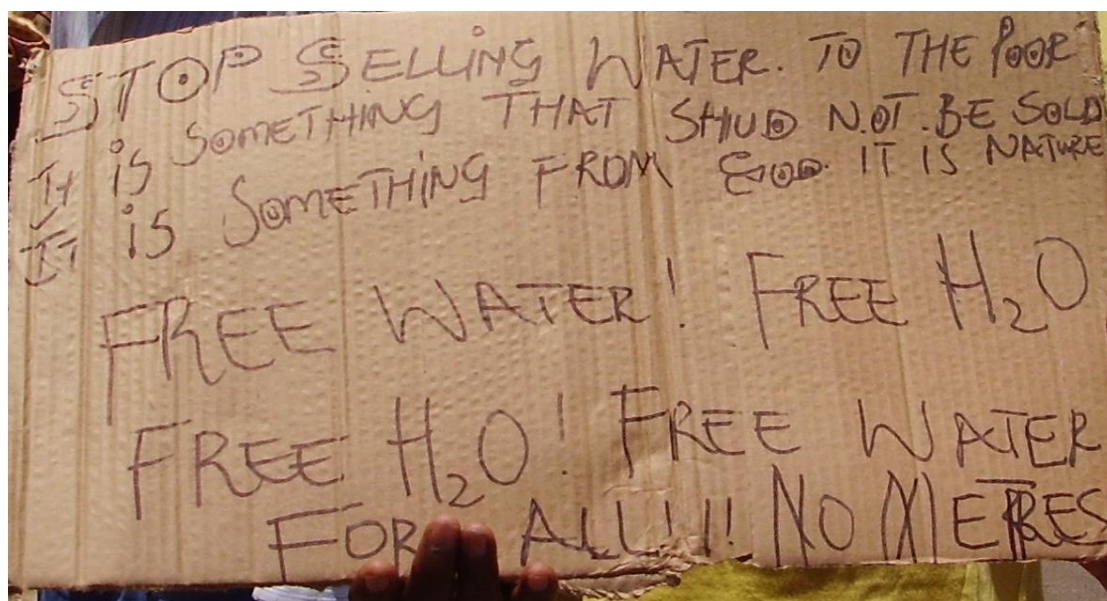 STOP SELLING WATER. TO THE POOR
It is SOMETHING THAT SHUD NOT BE SOLD
IT is SOMETHING FROM GOD. IT IS NATURE
FREE WATER! FREE H₂O
FREE H₂O! FREE WATER
FOR ALL!!!! NO METRES